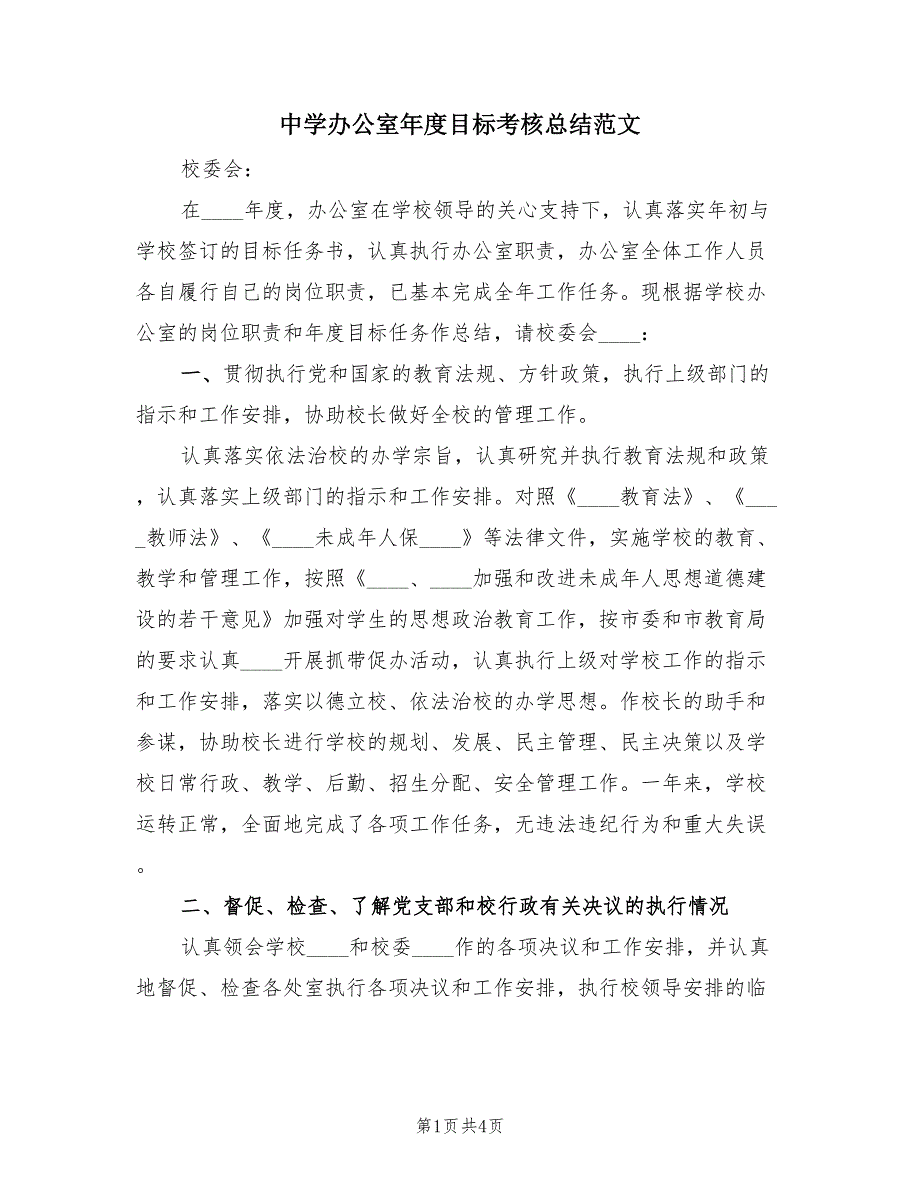 中学办公室年度目标考核总结范文
校委会：
在____年度，办公室在学校领导的关心支持下，认真落实年初与
学校签订的目标任务书，认真执行办公室职责，办公室全体工作人员
各自履行自己的岗位职责，已基本完成全年工作任务。现根据学校办
公室的岗位职责和年度目标任务作总结，请校委会____：
一、贯彻执行党和国家的教育法规、方针政策，执行上级部门的
指示和工作安排，协助校长做好全校的管理工作。
认真落实依法治校的办学宗旨，认真研究并执行教育法规和政策
，认真落实上级部门的指示和工作安排。对照《____教育法》、《___
_教师法》、《____未成年人保____》等法律文件，实施学校的教育、
教学和管理工作，按照《____、____加强和改进未成年人思想道德建
设的若干意见》加强对学生的思想政治教育工作，按市委和市教育局
的要求认真____开展抓带促办活动，认真执行上级对学校工作的指示
和工作安排，落实以德立校、依法治校的办学思想。作校长的助手和
参谋，协助校长进行学校的规划、发展、民主管理、民主决策以及学
校日常行政、教学、后勤、招生分配、安全管理工作。一年来，学校
运转正常，全面地完成了各项工作任务，无违法违纪行为和重大失误
。
二、督促、检查、了解党支部和校行政有关决议的执行情况
认真领会学校____和校委____作的各项决议和工作安排，并认真
地督促、检查各处室执行各项决议和工作安排，执行校领导安排的临
第1页共4页